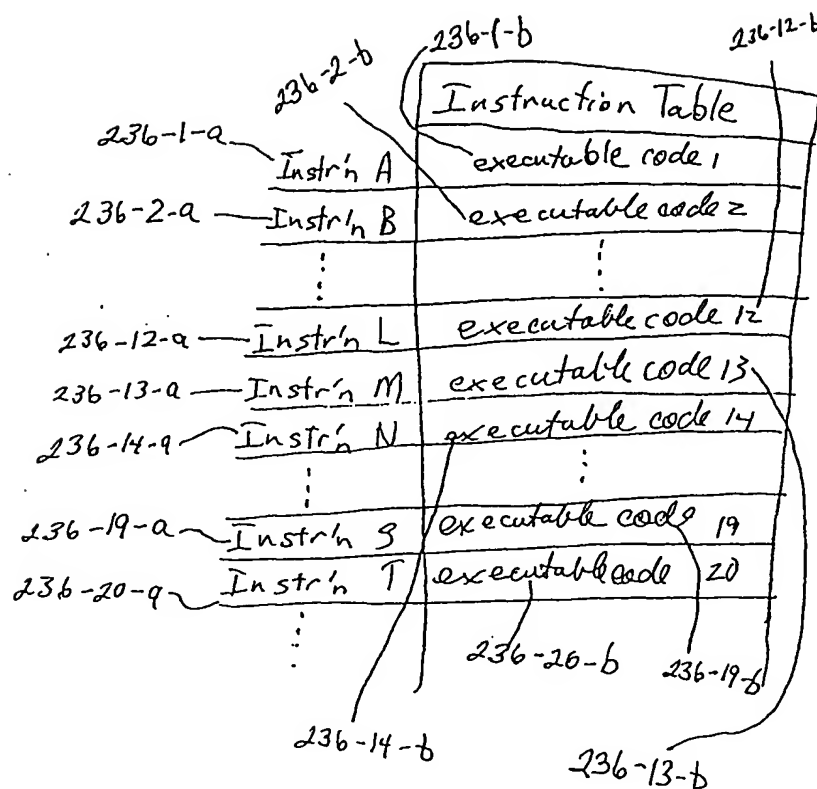 236-1-b
236-12-b
236-2-b
Instruction Table
236-1-a Instr'n A executable code 1
236-2-a Instr'n B executable code 2
236-12-a Instr'n L executable code 12
236-13-a Instr'n M executable code 13
236-14-a Instr'n N executable code 14
236-19-a Instr'n S executable code 19
236-20-a Instr'n T executable code 20
236-20-b 236-19-b
236-14-b
236-13-b